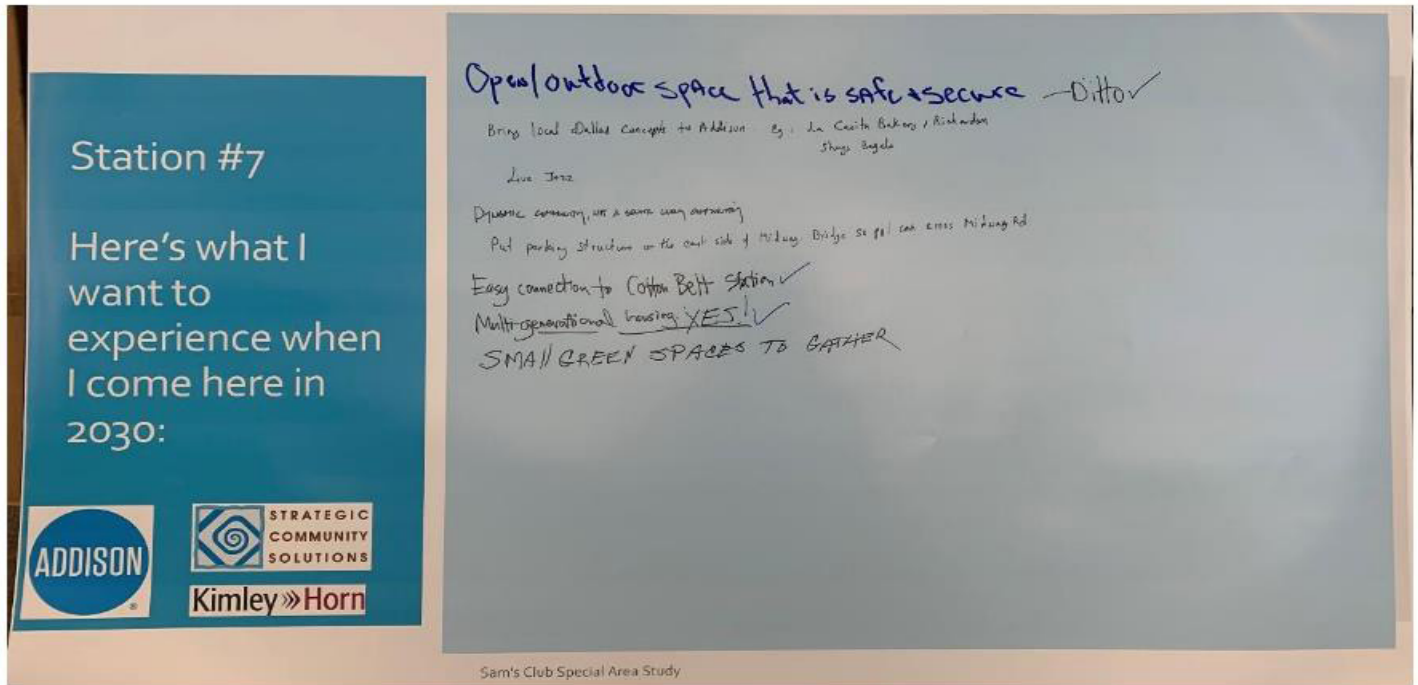 Station #7
Here's what I
want to
experience when
I come here in
2030:
ADDISON
STRATEGIC
COMMUNITY
SOLUTIONS
Kimley»Horn
Open/outdoor SpAce that is sAfe + secure - Ditto ✓
Bring local Dallas Concepts to Addison eg. La Casita Bakery, Richardson
Shugs Bagels
Live Jazz
Dynamic
Put parking structure on the east side of Midway. Bridge so ppl can cross Midway Rd
Easy connection to Cotton Belt Station ✓
Multi-generational housing YES! ✓
SMAll GREEN SPACES TO GATHER
Sam's Club Special Area Study